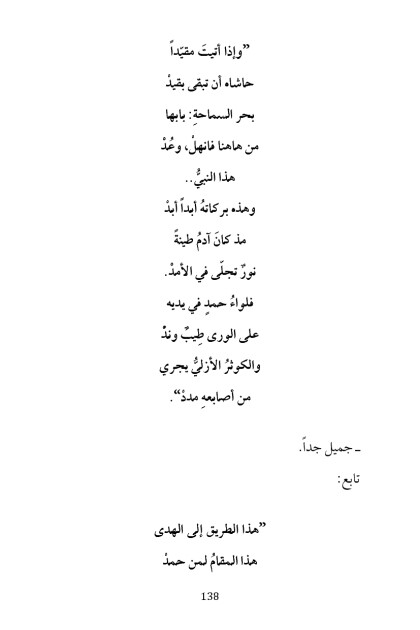 ”وإذا أتيتَ مقيّداً
حاشاه أن تبقى بقيدْ
بحر السماحةِ: بابها
من هاهنا فانهلْ، وعُدْ
هذا النبيُّ..
وهذه بركاتهُ أبداً أبدْ
مذ كانَ آدمُ طينةً
نورٌ تجلّى في الأمدْ.
فلواءُ حمدٍ في يديه
على الورى طِيبٌ وندْ
والكوثرُ الأزليُّ يجري
من أصابعهِ مددْ“.
ــ جميل جداً.
تابع:
”هذا الطريق إلى الهدى
هذا المقامُ لمن حمدْ
138